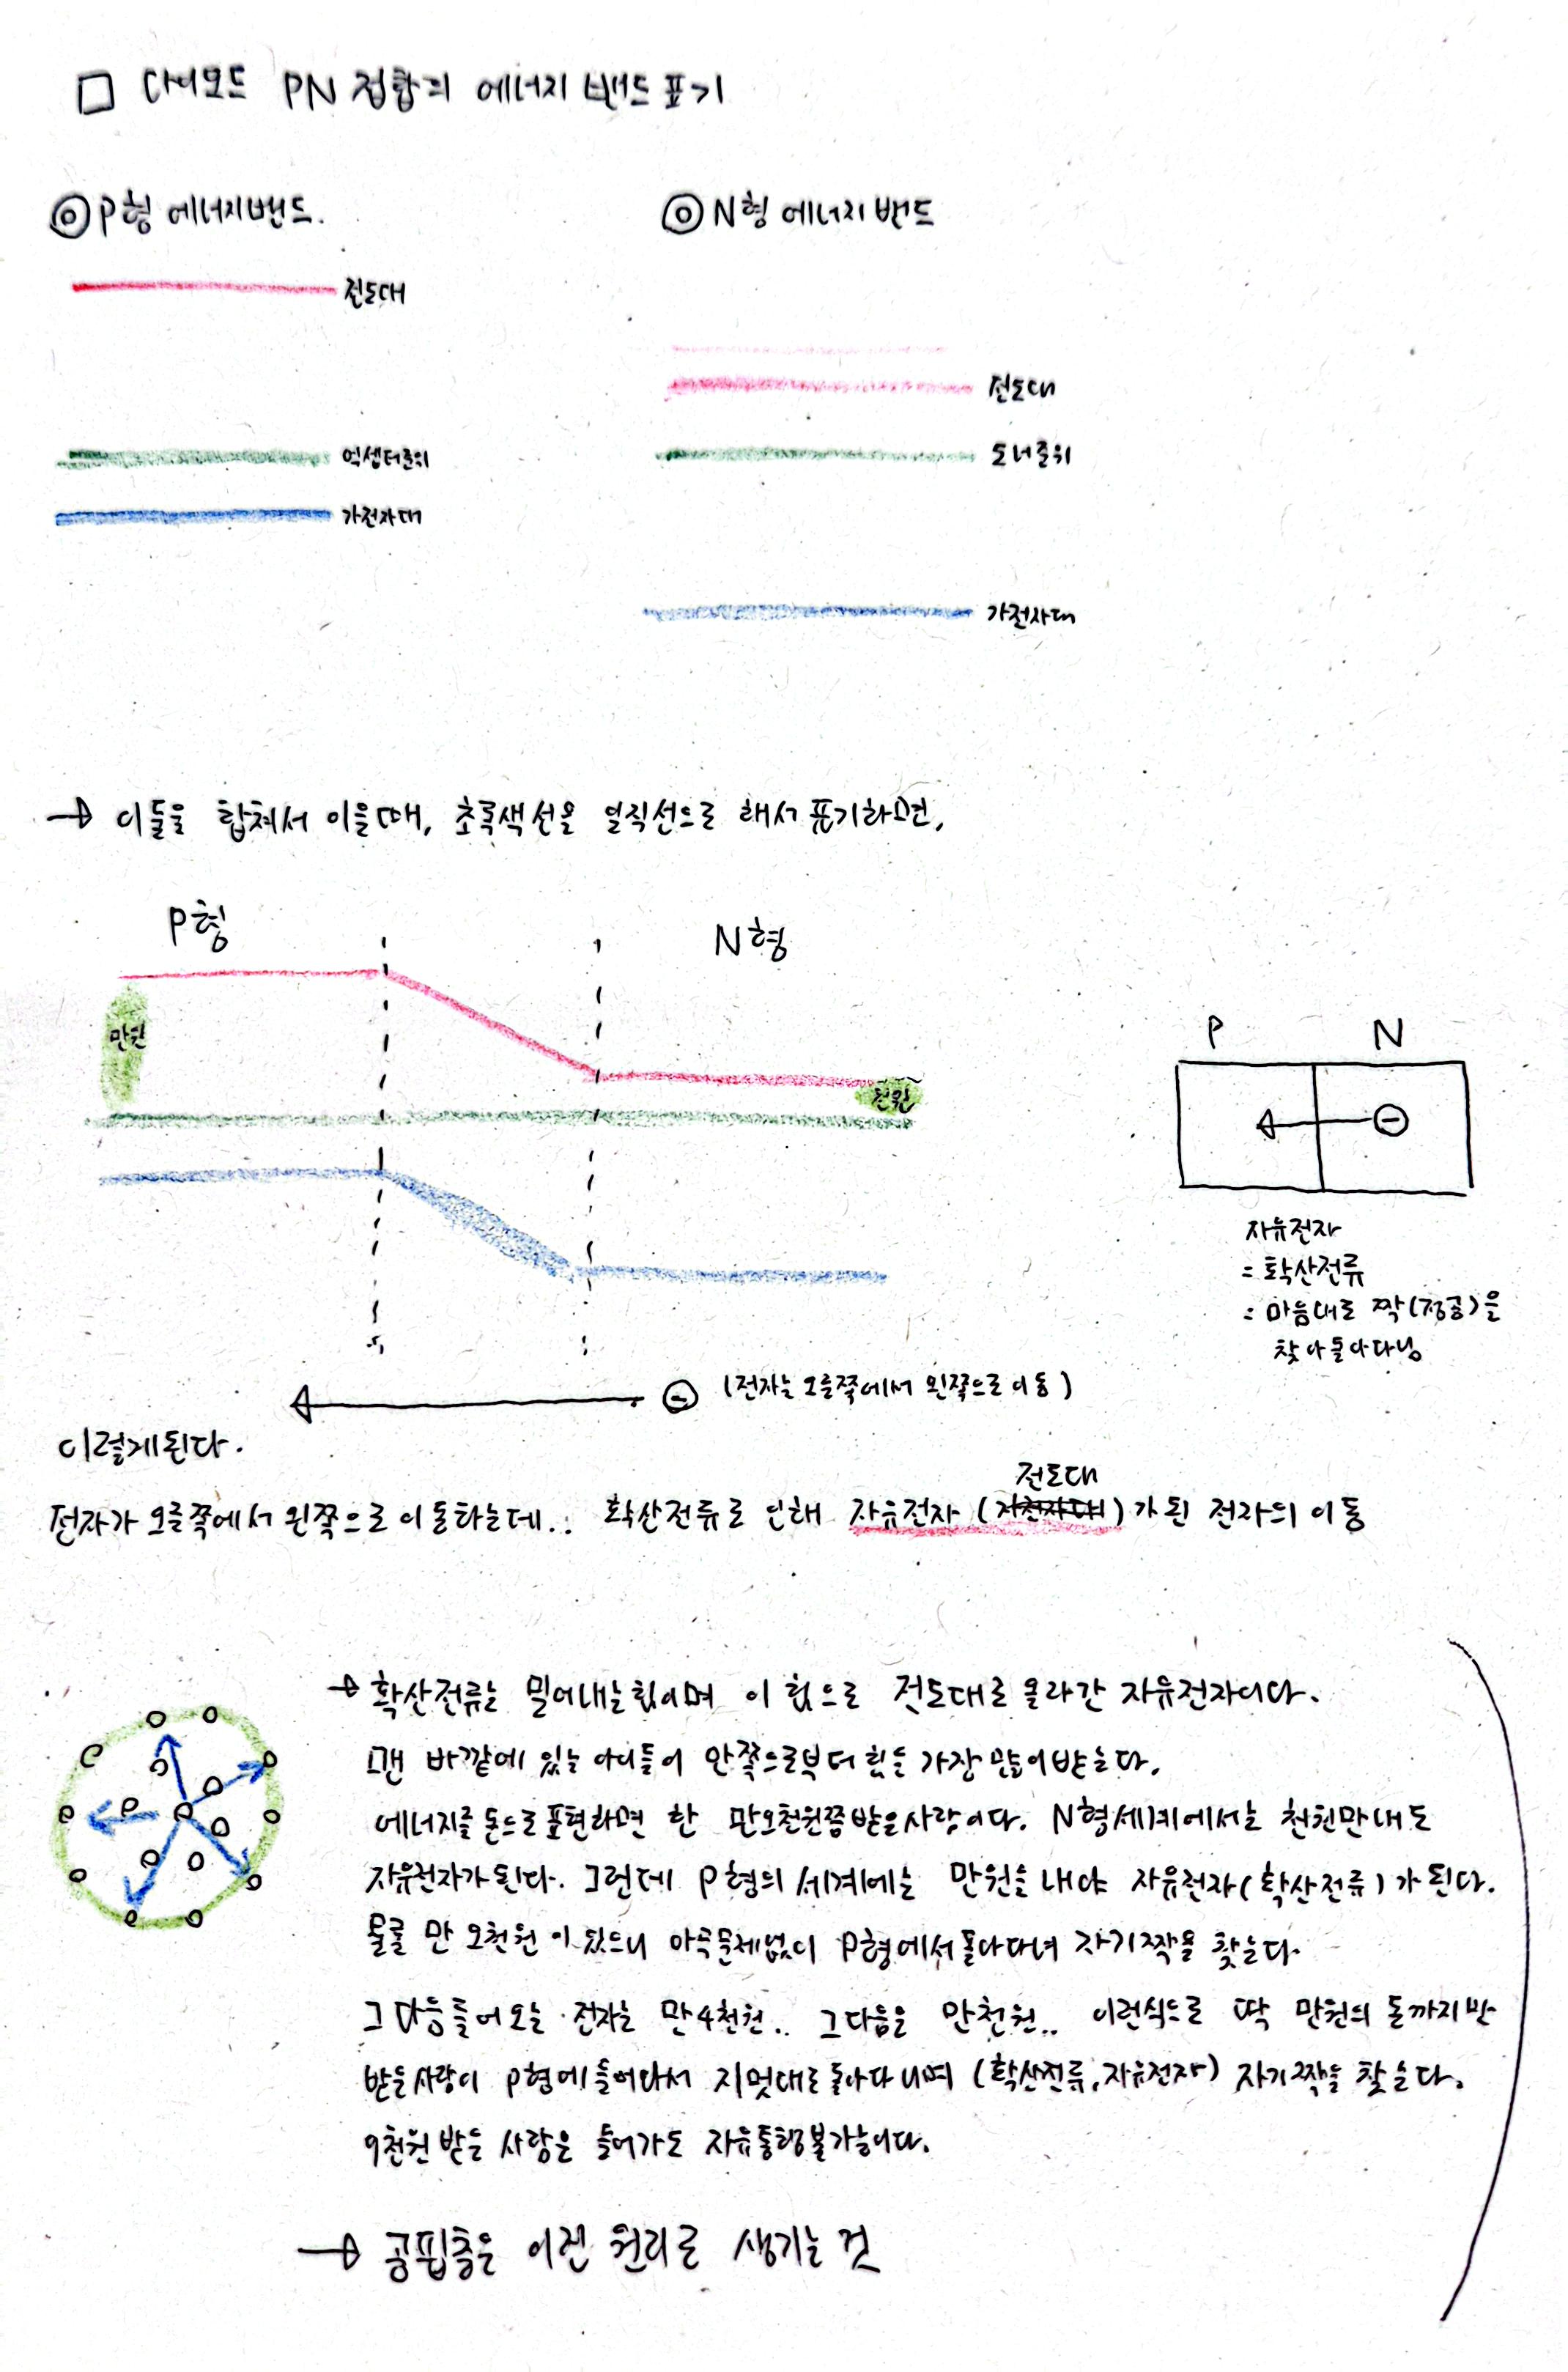 □ 다이오드 PN 접합의 에너지 밴드 표기
◎ P형 에너지밴드.
◎ N형 에너지 밴드
전도대
전도대
억셉터준위
도너준위
가전자대
가전자대
→ 이들을 합쳐서 이을때, 초록색 선을 일직선으로 해서 표기하면,
P형
N형
만원
천원
P N
⊖
자유전자
= 확산전류
= 마음대로 짝(정공)을
찾아 돌아다님
⊖ (전자는 오른쪽에서 왼쪽으로 이동)
이렇게된다.
전도대
전자가 오른쪽에서 왼쪽으로 이동하는데.. 확산전류로 인해 자유전자 (가전자대)가 된 전자의 이동
→ 확산전류는 밀어내는힘이며 이 힘으로 전도대로 올라간 자유전자이다.
맨 바깥에 있는 아이들이 안쪽으로부터 힘을 가장 많이받는다.
에너지를 돈으로 표현하면 한 만오천원쯤받은사람이다. N형세계에서는 천원만내도
자유전자가 된다. 그런데 P형의 세계에는 만원을 내야 자유전자(확산전류)가 된다.
물론 만 오천원이 있으니 아무문제없이 P형에서돌아다녀 자기짝을 찾는다.
그다음들어오는 전자는 만4천원.. 그다음은 만천원.. 이런식으로 딱 만원의 돈까지만
받은사람이 P형에들어와서 지멋대로 돌아다니며 (확산전류,자유전자) 자기짝을 찾는다.
9천원 받은 사람은 들어가도 자유통행불가능이다.
→ 공핍층은 이런 원리로 생기는 것